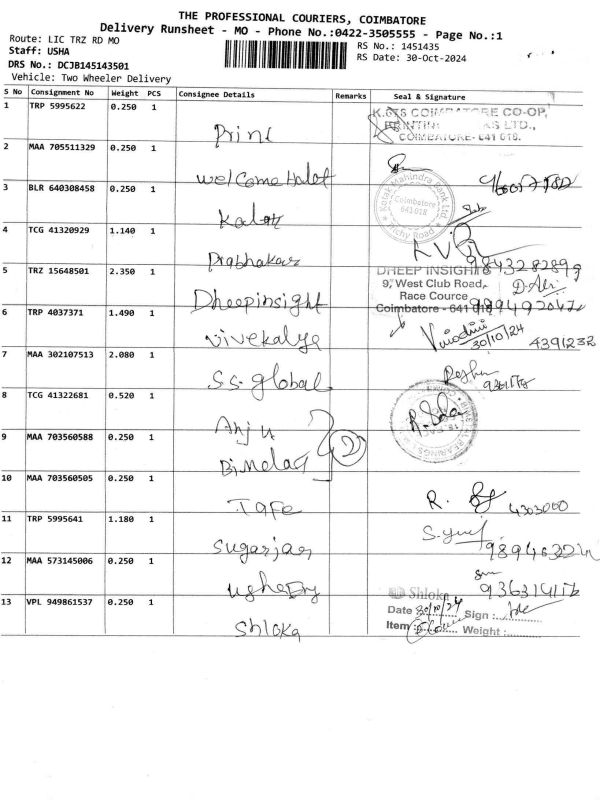 THE PROFESSIONAL COURIERS, COIMBATORE
Delivery Runsheet - MO - Phone No.:0422-3505555 - Page No.:1
Route: LIC TRZ RD MO
RS No.: 1451435
Staff: USHA
RS Date: 30-Oct-2024
DRS No.: DCJB145143501
Vehicle: Two Wheeler Delivery
S No Consignment No Weight PCS Consignee Details Remarks Seal & Signature
1 TRP 5995622 0.250 1
COIMBATORE CO-OP,
LTD.,
COIMBATORE- 641 018.
Print
2 MAA 705511329 0.250 1
Welcome Hotel
Kotak Mahindra Bank Ltd
Coimbatore
641 018
Trichy Road
3 BLR 640308458 0.250 1
Kotak
4 TCG 41320929 1.140 1
Prabhakar
9843282899
5 TRZ 15648501 2.350 1
DHEEP INSIGHTS
9, West Club Road,
Race Cource
Coimbatore - 641 018
Dheepinsight
6 TRP 4037371 1.490 1
Vinodini
30/10/24
4391232
vivekalya
7 MAA 302107513 2.080 1
S.S. global
8 TCG 41322681 0.520 1
Anju
9 MAA 703560588 0.250 1
2
10 MAA 703560505 0.250 1
R.
4303000
Tafe
11 TRP 5995641 1.180 1
sugarjan
12 MAA 573145006 0.250 1
13 VPL 949861537 0.250 1
Shloka
Date 30/10/24 Sign :
Item : Weight :
Shloka